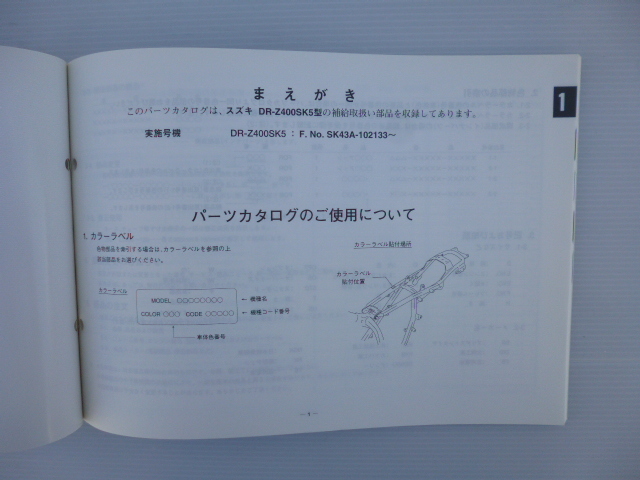 まえがき
1
このパーツカタログは、スズキ DR-Z400SK5型の補給取扱い部品を収録してあります。
実施号機 DR-Z400SK5 : F. No. SK43A-102133～
パーツカタログのご使用について
1. カラーラベル
色物部品を牽引する場合は、カラーラベルを参照の上
該当部品をお選びください。
カラーラベル貼付場所
カラーラベル
貼付位置
カラーラベル
MODEL ○○○○○○○○ ← 機種名
COLOR ○○○ CODE ○○○○○ ← 機種コード番号
車体色番号
— 1 —